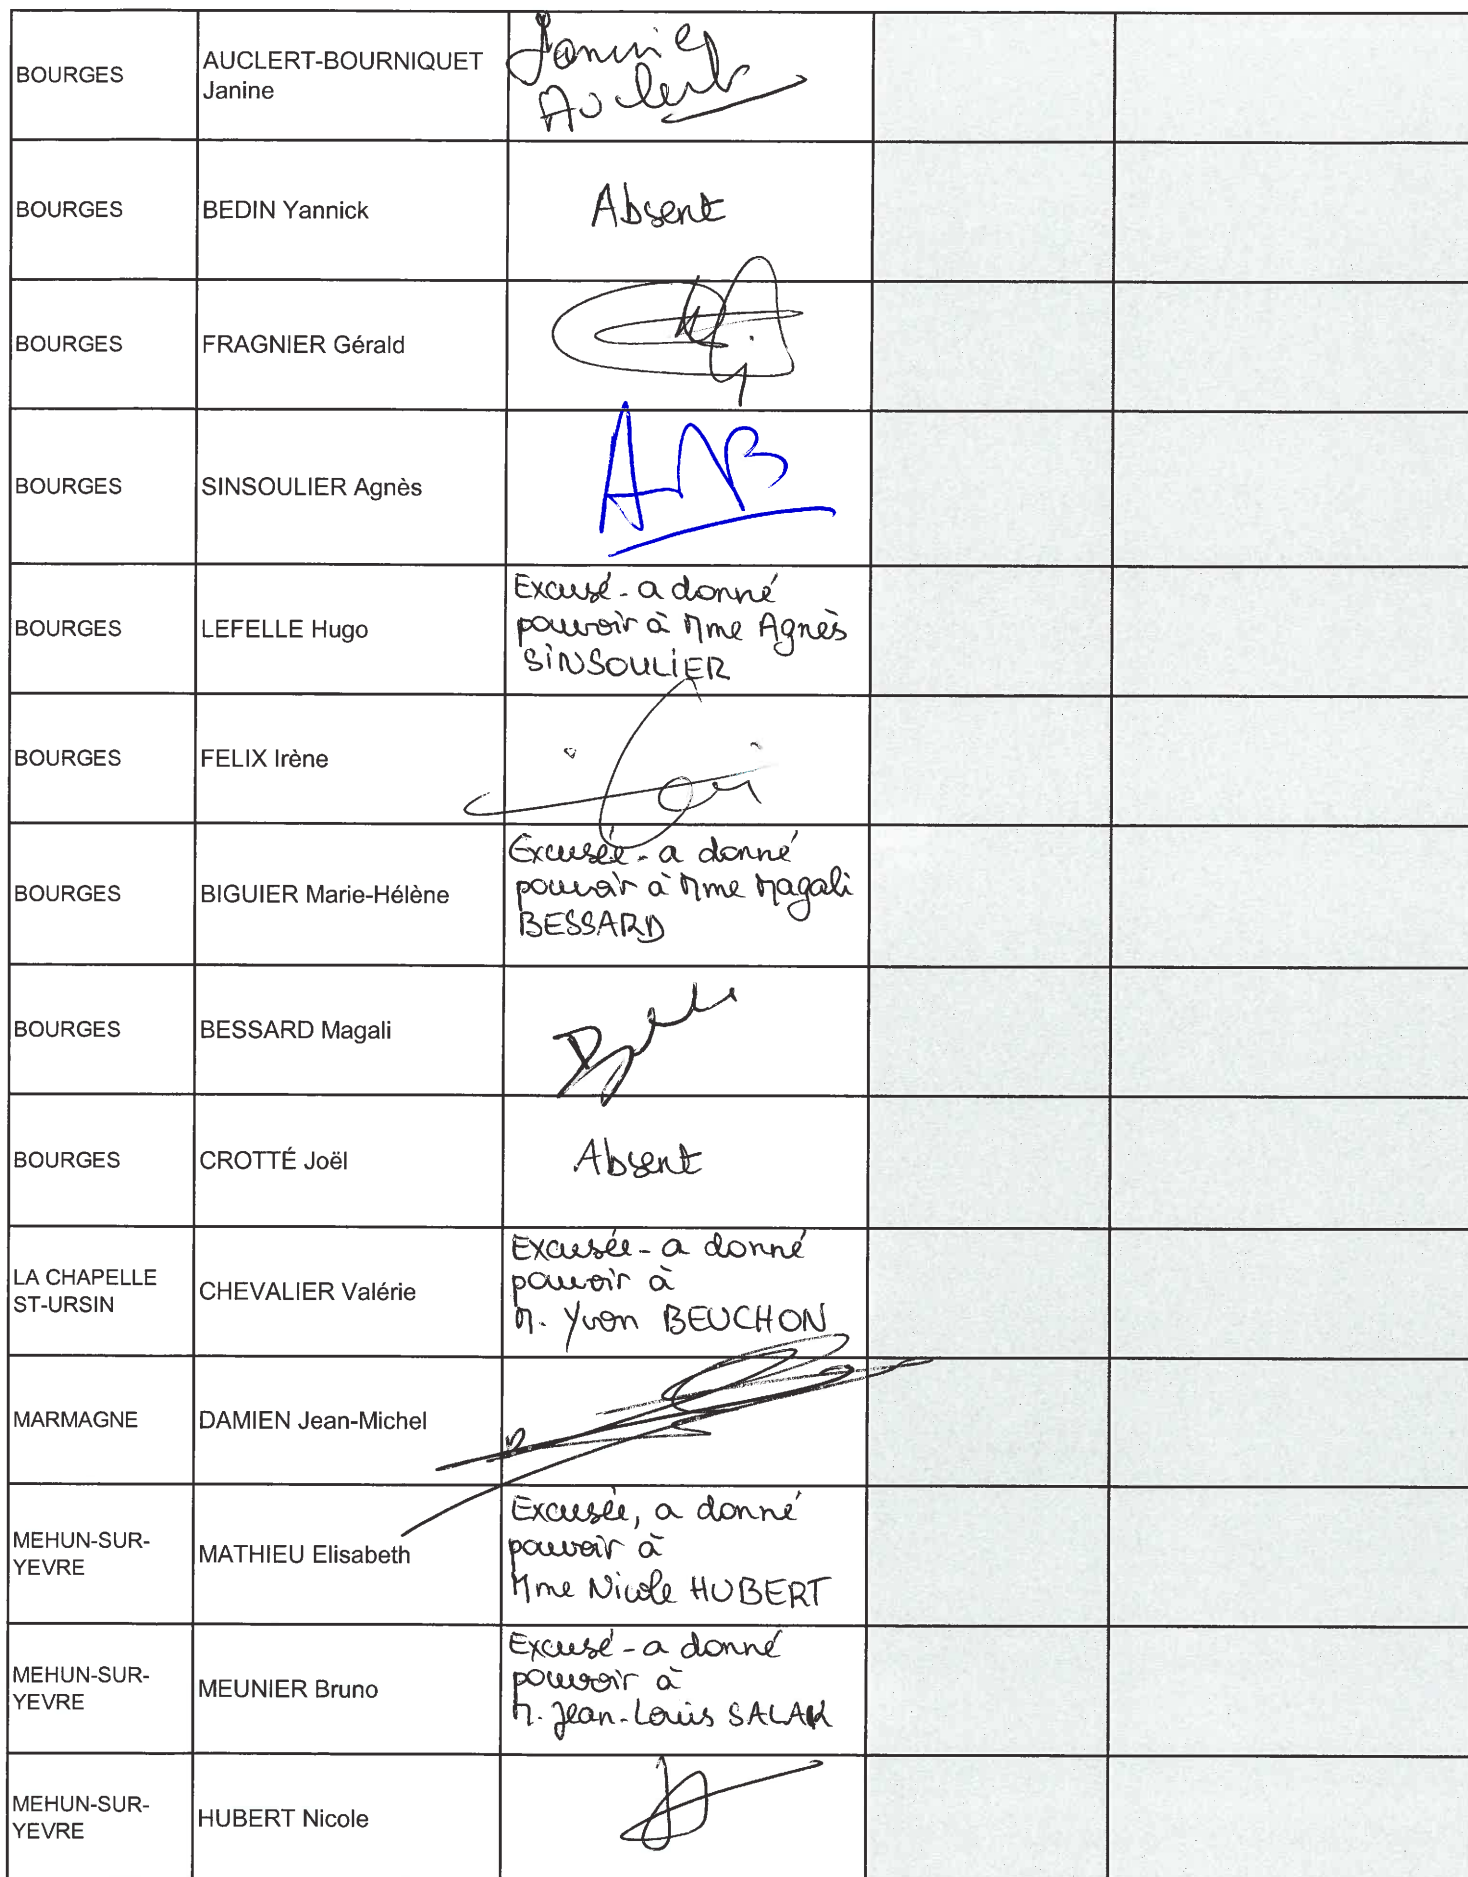 BOURGES
AUCLERT-BOURNIQUET
Janine
Janine
Auclert
BOURGES
BEDIN Yannick
Absent
BOURGES
FRAGNIER Gérald
BOURGES
SINSOULIER Agnès
BOURGES
LEFELLE Hugo
Excusé - a donné
pouvoir à Mme Agnès
SINSOULIER
BOURGES
FELIX Irène
BOURGES
BIGUIER Marie-Hélène
Excusée - a donné
pouvoir à Mme Magali
BESSARD
BOURGES
BESSARD Magali
BOURGES
CROTTÉ Joël
Absent
LA CHAPELLE
ST-URSIN
CHEVALIER Valérie
Excusée - a donné
pouvoir à
M. Yvon BEUCHON
MARMAGNE
DAMIEN Jean-Michel
MEHUN-SUR-
YEVRE
MATHIEU Elisabeth
Excusée, a donné
pouvoir à
Mme Nicole HUBERT
MEHUN-SUR-
YEVRE
MEUNIER Bruno
Excusé - a donné
pouvoir à
M. Jean-Louis SALAK
MEHUN-SUR-
YEVRE
HUBERT Nicole